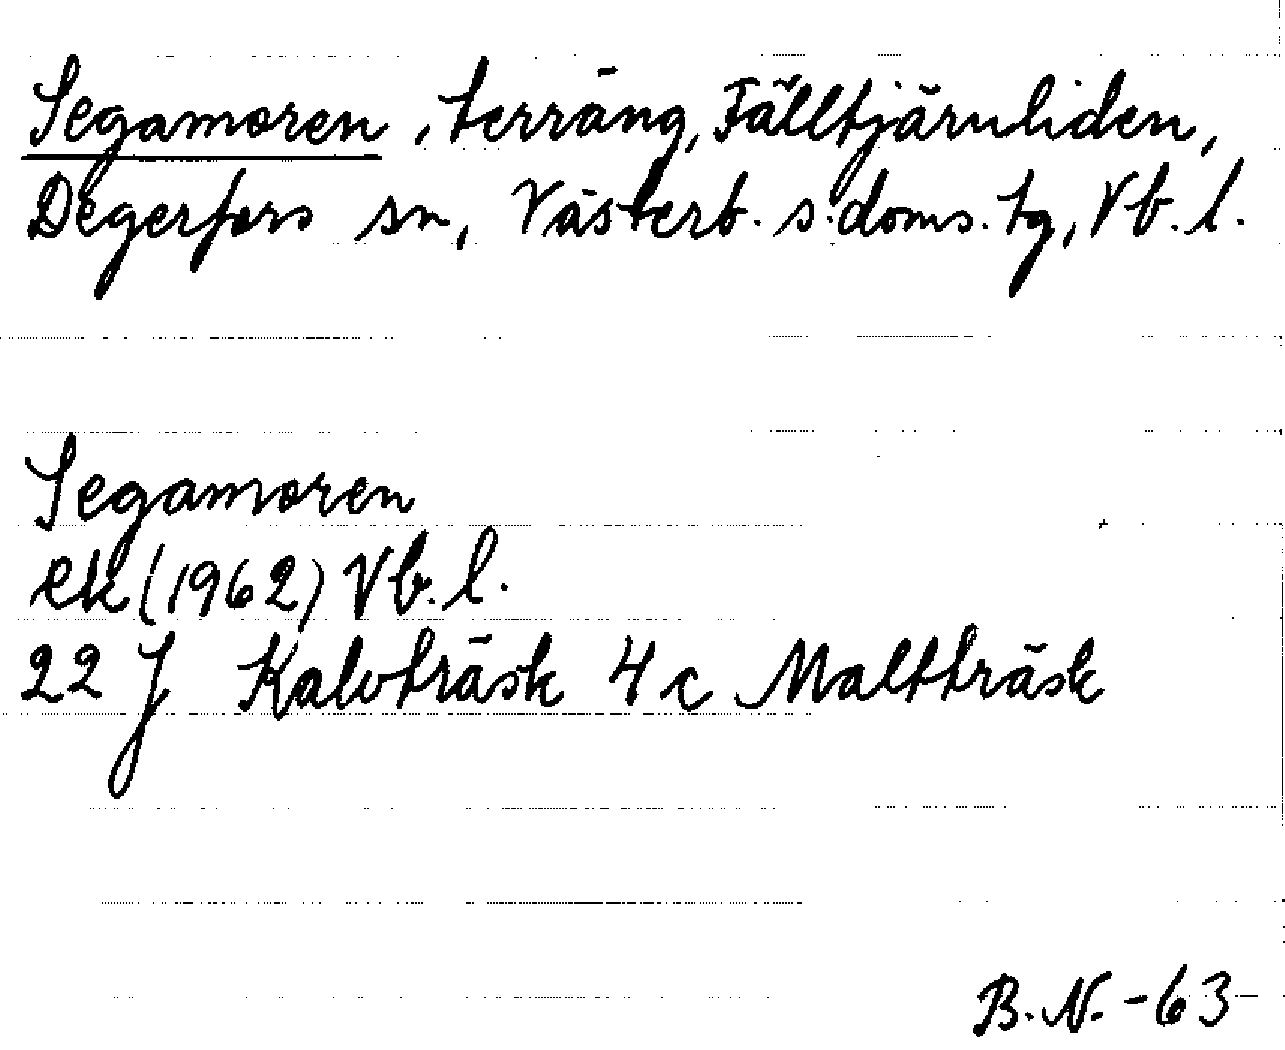 Segamoren, terräng, Fälltjärnliden,
Degerfors sn, Västerb. s. doms. tg, Vb. l.
Segamoren
ek (1962) Vb. l.
22 J Kalvträsk 4 c Maltträsk
B. N. -63